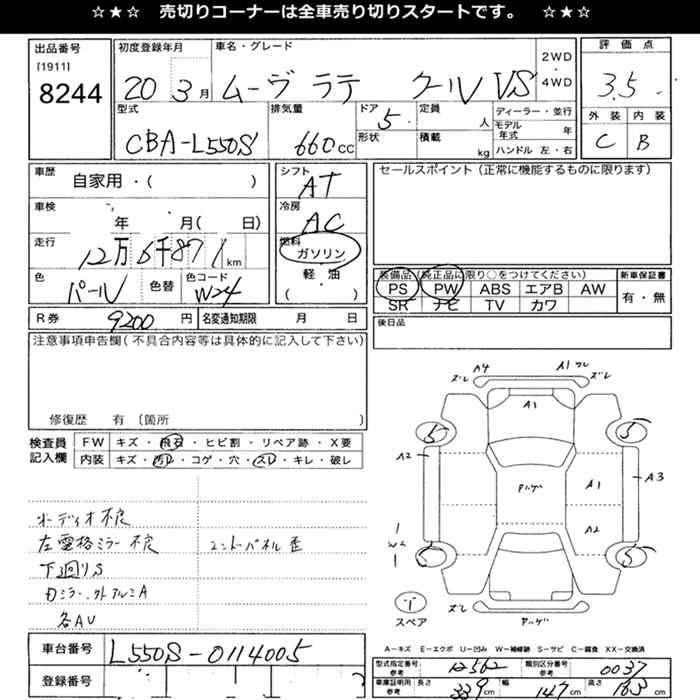 ☆★☆ 売切りコーナーは全車売り切りスタートです。 ☆★☆
出品番号 初度登録年月 車名・グレード 2WD・4WD 評価点
[1911]
8244 20 3月 ムーヴ ラテ クール VS 3.5
型式 排気量 ドア 定員 ディーラー・並行 外装 内装
CBA-L550S 660cc 5 人 モデル年式 年 C B
形状 積載 kg ハンドル 左・右
車歴 自家用・( ) シフト AT セールスポイント(正常に機能するものに限ります)
車検 年 月( 日) 冷房 AC
走行 12万6千871km 燃料 ガソリン 軽・油 ( )
色 パール 色替 色コード W24
装備品(純正品に限り○をつけてください) 新車保証書
PS PW ABS エアB AW 有・無
SR ナビ TV カワ
R券 9200円 名変通知期限 月 日 後日品
注意事項申告欄(不具合内容等は具体的に記入して下さい)
修復歴 有 (箇所 )
検査員 FW キズ・飛石・ヒビ割・リペア跡・X要
記入欄 内装 キズ・汚レ・コゲ・穴・スレ・キレ・破レ
オーディオ不良
左電格ミラー不良 エンドパネル歪
下廻りS
内ミラー、外アルミA
各AU
ズレ A4 A1 ワレ ズレ
A1
5 5
A2 Pハゲ A1 A3
W2 A2
5 5
スペア ズレ Pハゲ
A-キズ E-エクボ U-凹み W-補修跡 S-サビ C-腐食 XX-交換済
車台番号 L550S-0114005
登録番号
型式指定番号 参考 12562 類別区分番号 参考 0037
車庫証明用 参考 長さ 339cm 幅 147cm 高さ cm